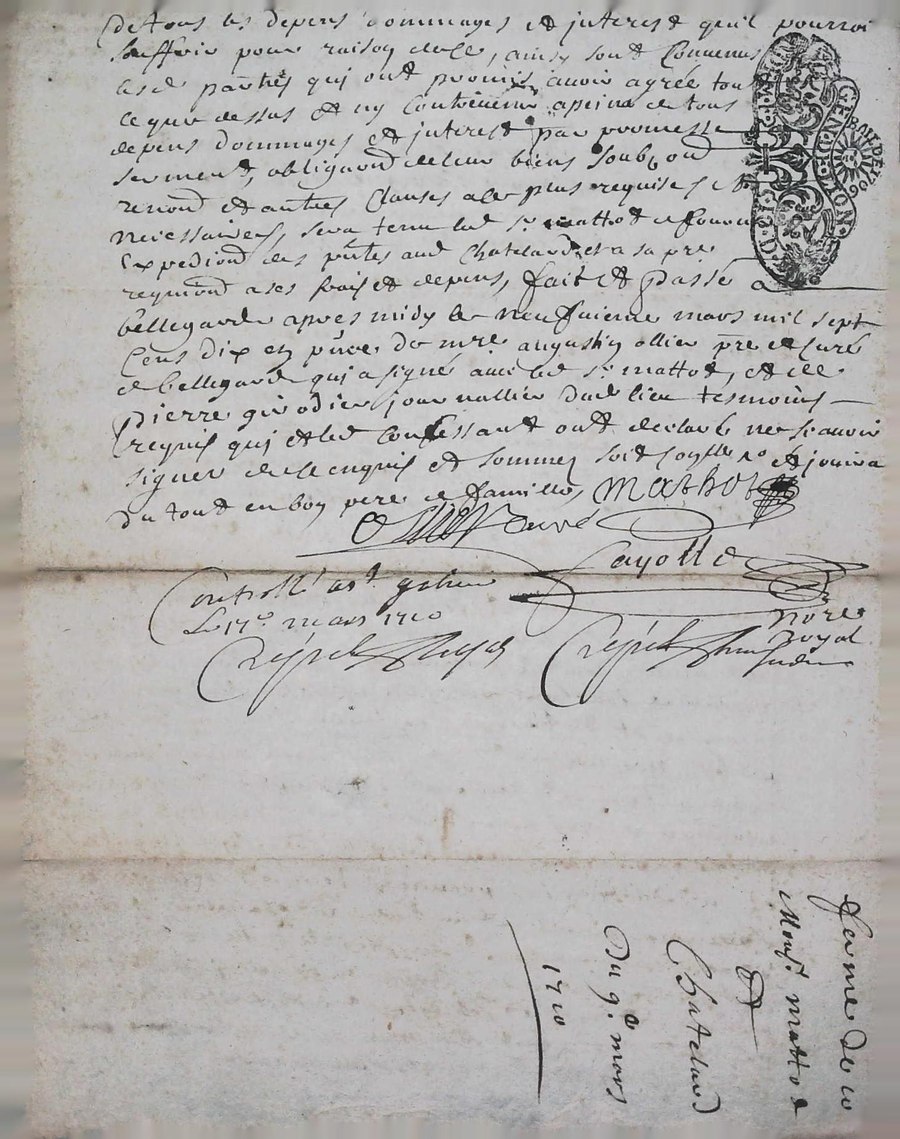 De tous les depens dommages et jnterest quil pourroi
souffrir pour raison dele, ainsy sont Convenus
lesd parties qui ont promis avoir agreé tout
ce que dessus et ny Contrevenir apeine de tous
depens dommages et jnterest par promesse
serment, obligaond de leur biens soub,ond
renond et autres Clauses ale plus requises et
necessaires, sera tenu led sr mattot de fournir
Expediond des pntes aud Chatelard, et a sa pre
reqniond a ses frais et depens, fait et passé a
bellegarde apres midy le neufuieme mars mil sept
Cens dix en pnce de mre augustin ollier pre et Curé
de bellegarde qui a signé avec led sr mattot, et de
pierre girodier journallier dud lieu tesmoins
requis qui et led Confessant ont declaré ne scavoir
signer de ce enquis et sommez et jouira
du tout en bon pere de famille, Mathot
Curé
Cayotte
nore
Royal
Controllé a st
Le 17e mars 1710
Crépet
Crépet
GEN DE LION
BAIL DE 1706
ferme de
Monsr. mattot
et
Chatelard
Du 9e mars
1710